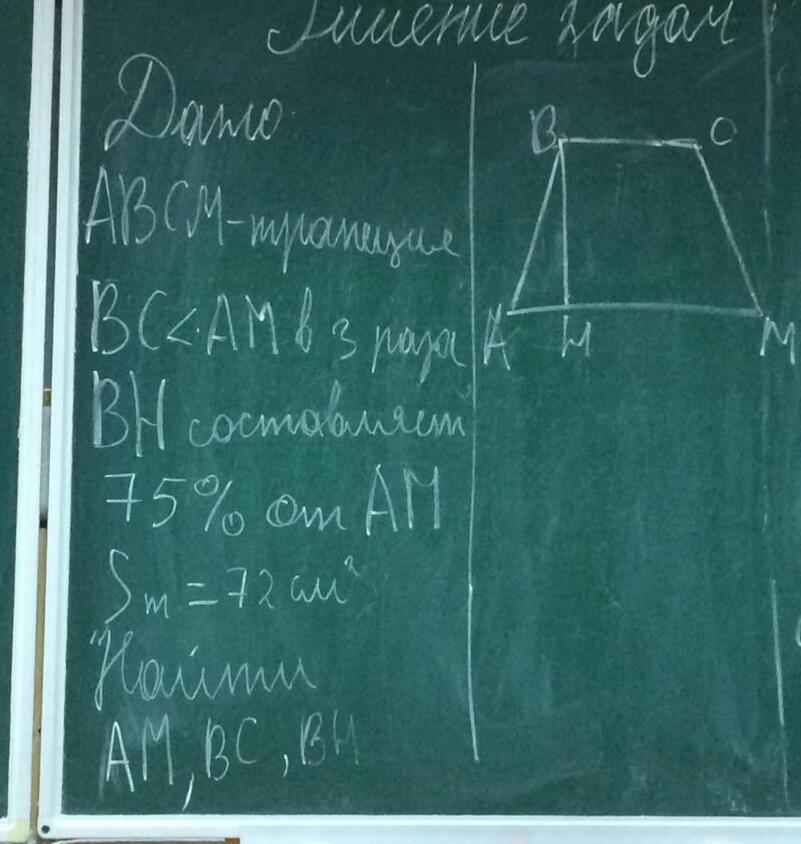 Решение задач
Дано
ABCM-трапеция
BC<AM в 3 раза
BH составляет
75% от AM
Sт = 72 см²
Найти
AM, BC, BH
B C
A H M